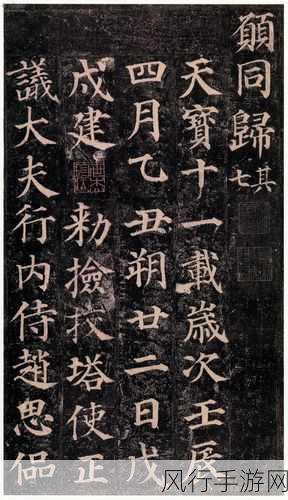 願同歸其七
天寶十一載歲次壬辰
四月乙丑朔廿二日戊
戍建 勑撿挍塔使正
議大夫行內侍趙思偘
风行手游网
www.fxsy.com